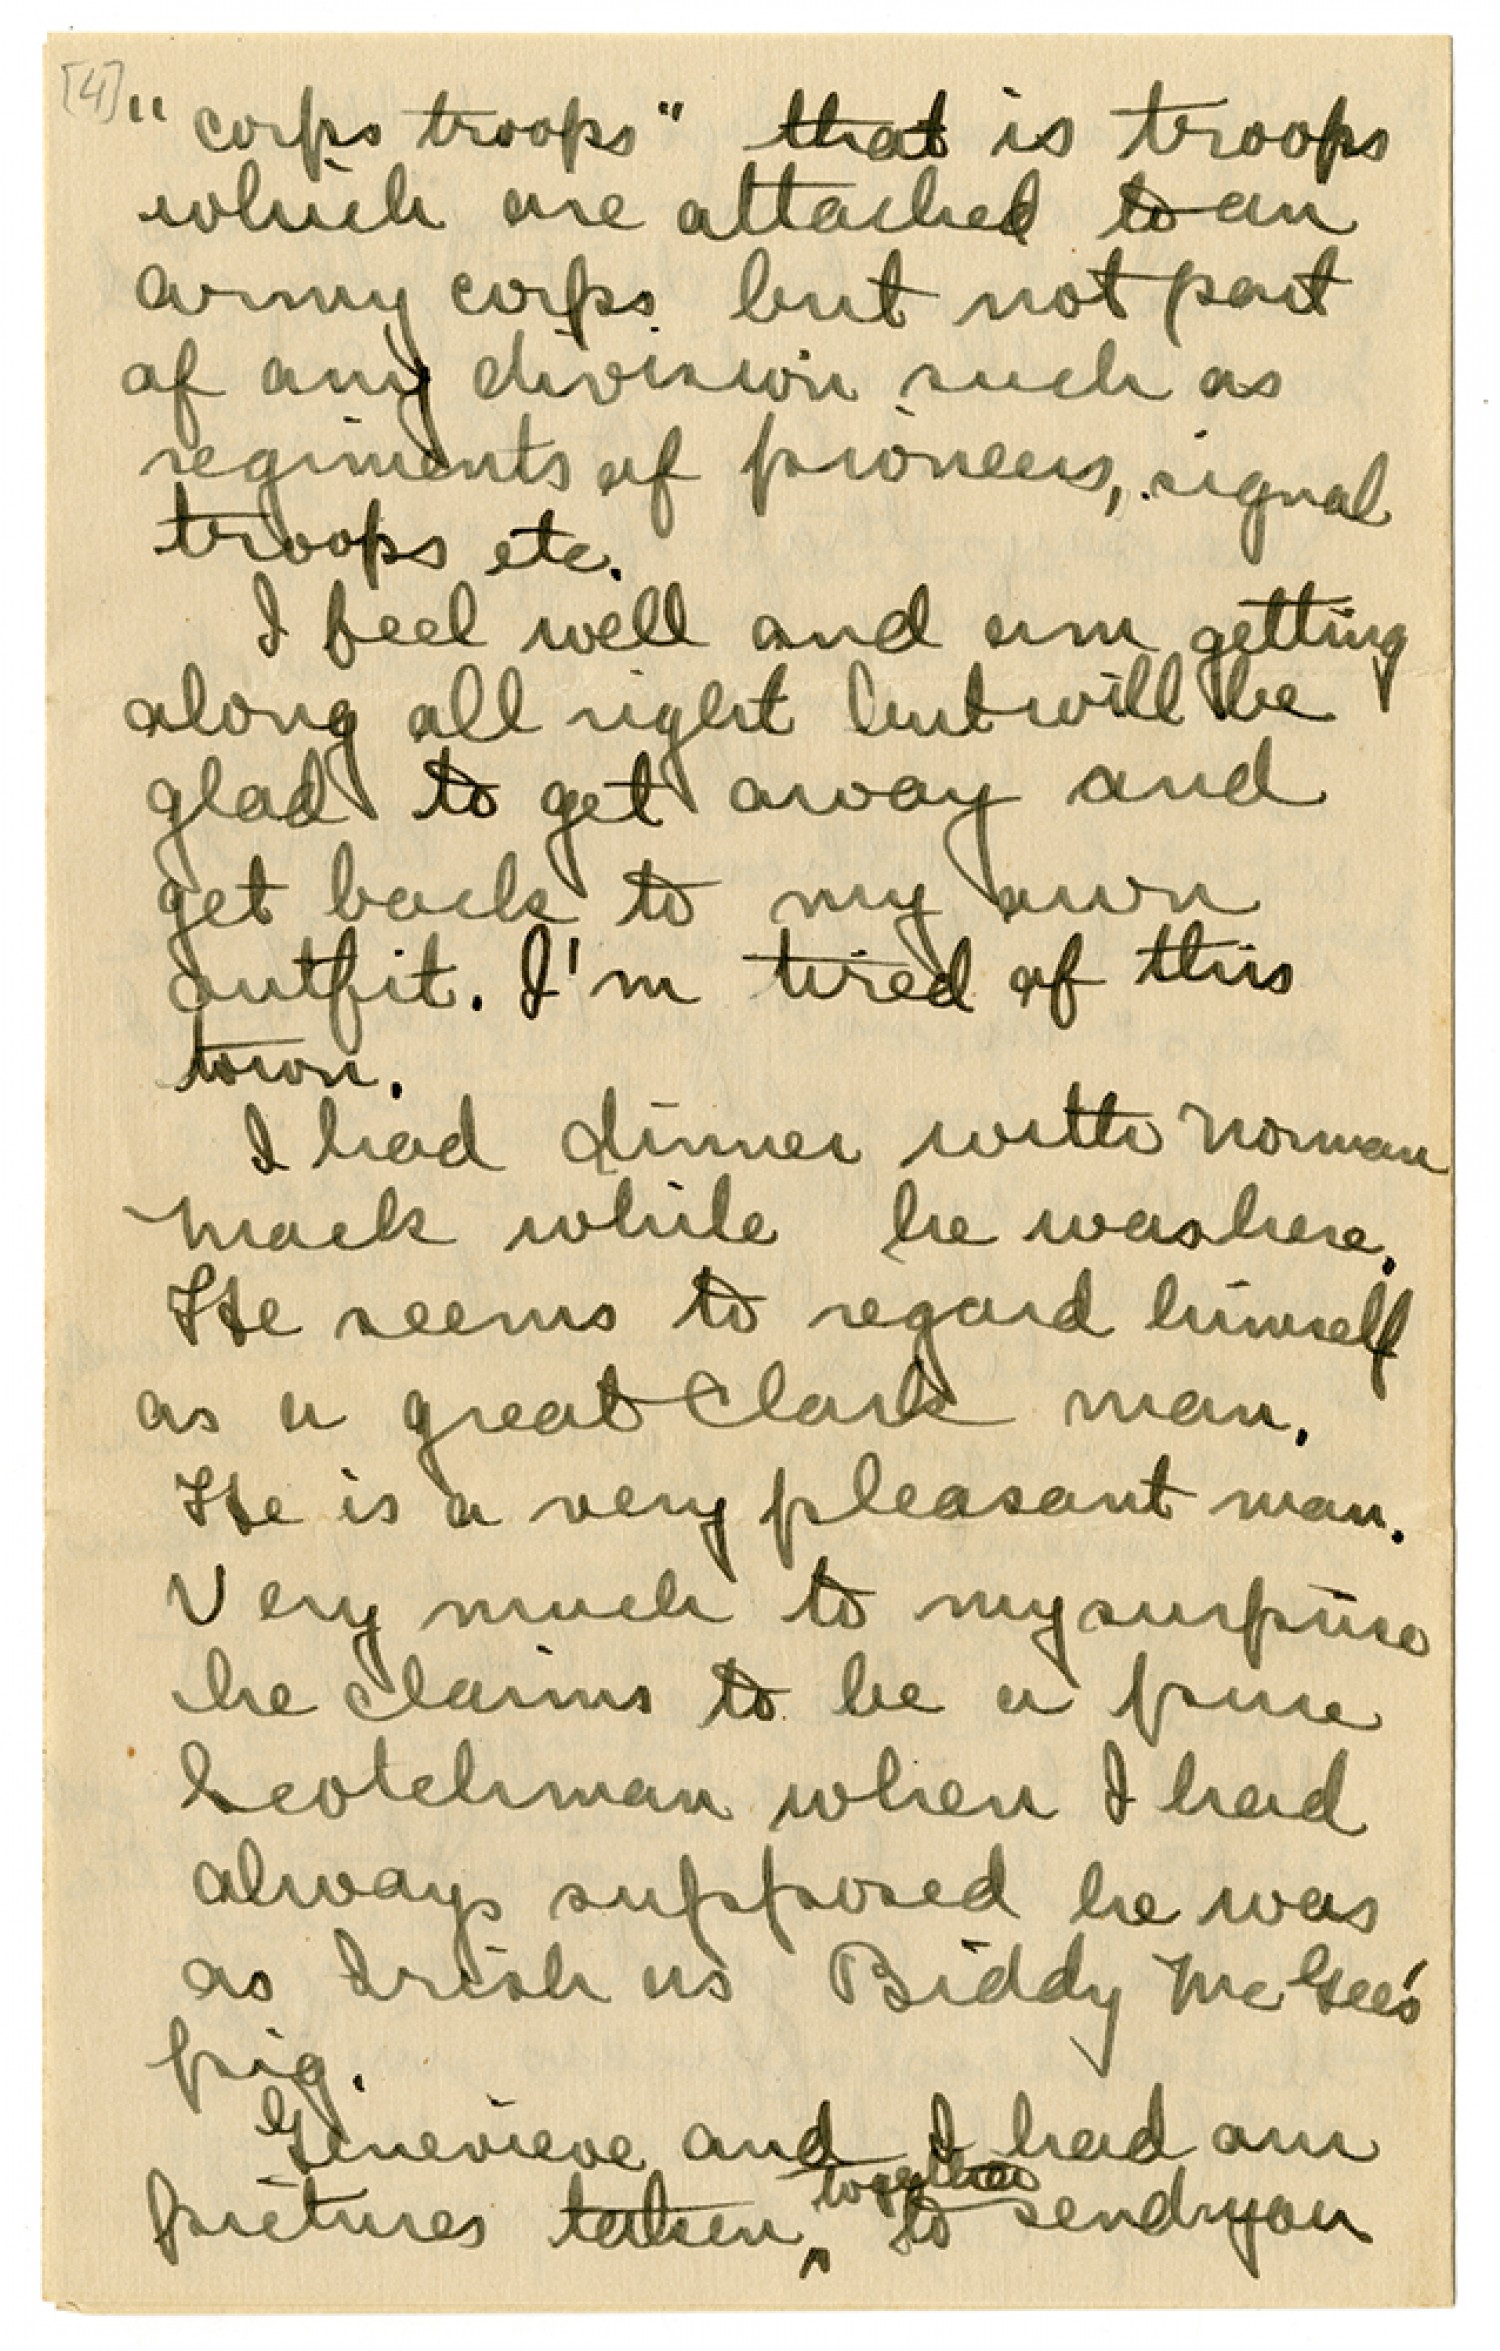 [4]
"corps troops" that is troops
which are attached to an
army corps but not part
of any division such as
regiments of pioneers, signal
troops etc.
I feel well and am getting
along all right but will be
glad to get away and
get back to my own
outfit. I'm tired of this
town.
I had dinner with Norman
Mack while he was here.
He seems to regard himself
as a great Clark man.
He is a very pleasant man.
Very much to my surprise
he claims to be a pure
Scotchman when I had
always supposed he was
as Irish as Biddy McGee's
pig.
Genevieve and I had our
together
pictures taken ^ to send you